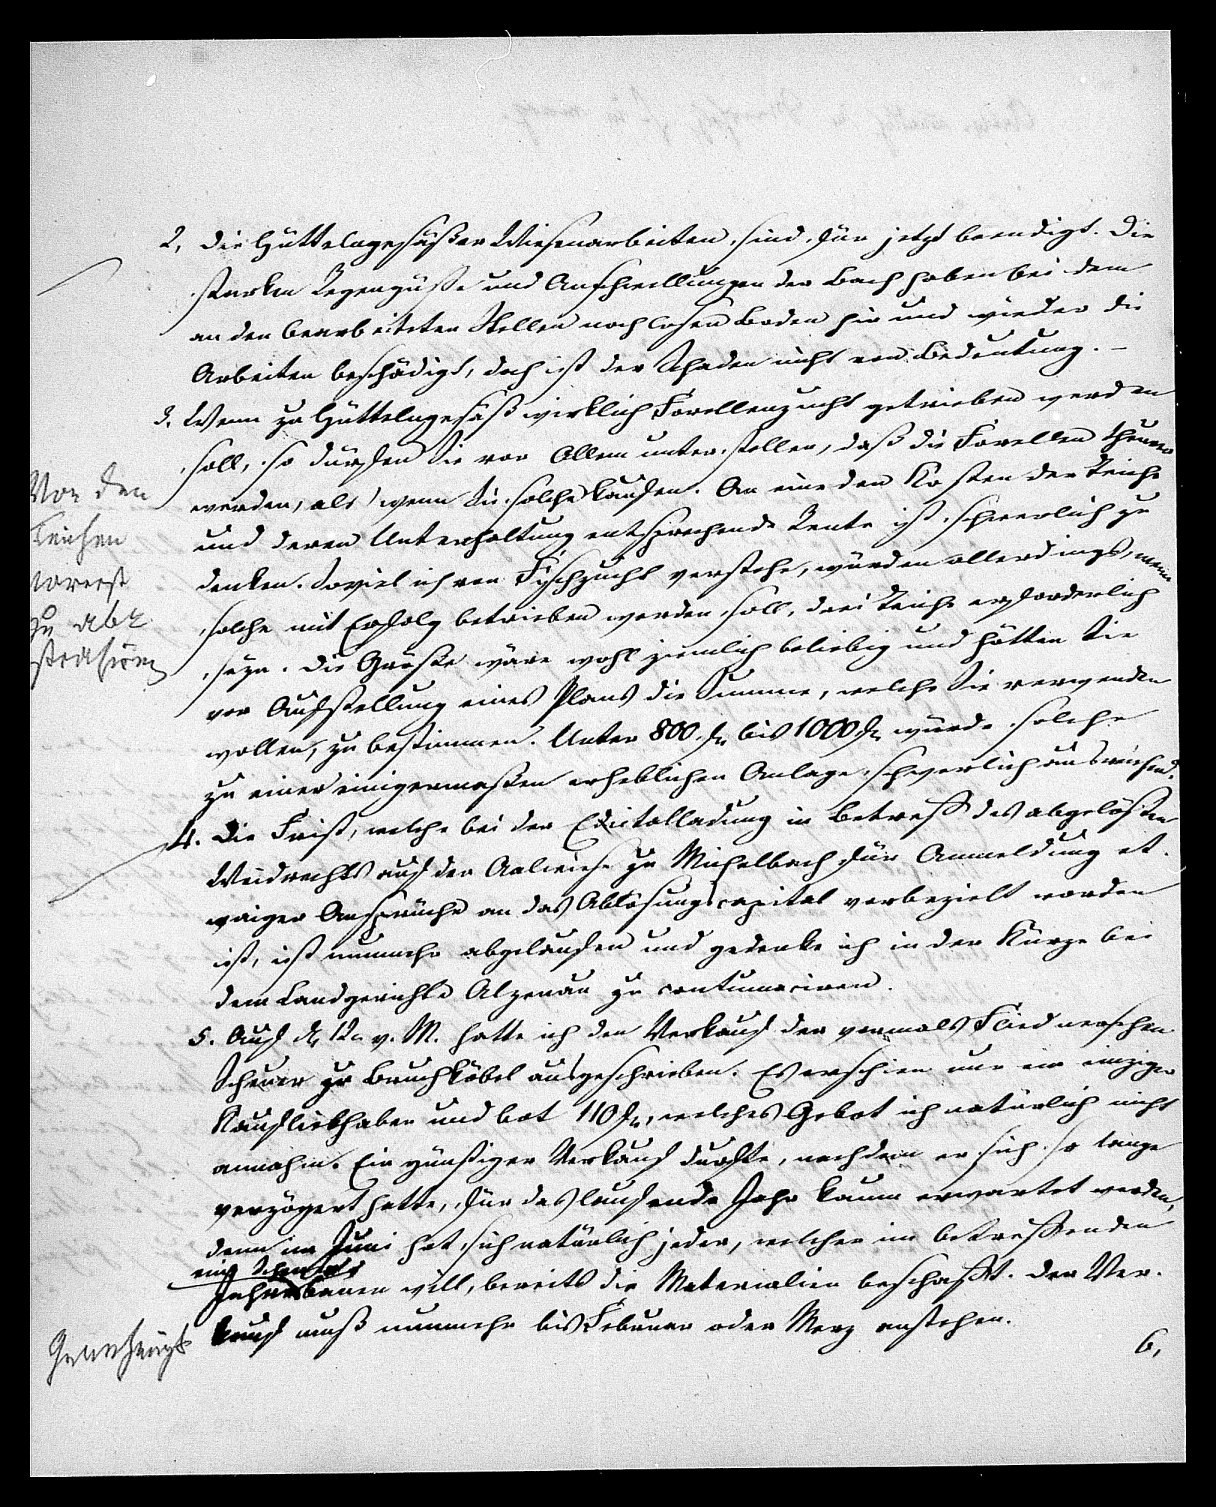 2, Die Hüttelngesäßer Wiesenarbeiten sind für jetzt beendigt. Die
starken Regengüsse und Anschwellungen der Bach haben bei dem
an den bearbeiteten Stellen noch losen Boden hie und wieder die
Arbeiten beschädigt, doch ist der Schaden nicht von Bedeutung. –
3. Wenn zu Hüttelngesäß wirklich Forellenzucht getrieben werden
soll, so dürfen Sie vor Allem unterstellen, daß die Forellen theurer
werden, als wenn Sie solche kaufen. An eine den Kosten der Teiche
und deren Unterhaltung entsprechende Rente ist schwerlich zu
denken. Soviel ich von Fischzucht verstehe, würden allerdings, wenn
solche mit Erfolg betrieben werden soll, drei Teiche erforderlich
seyn. Die Größe wäre wohl ziemlich beliebig und hätten Sie
vor Aufstellung eines Plans die Summe, welche Sie verwenden
wollen, zu bestimmen. Unter 800 fl bis 1000 fl würde solche
zu einer einigermaßen erheblichen Anlage schwerlich ausreichend.
Von den
Teichen
vorerst
zu abs
trahiren
4. Die Frist, welche bei der Edictalladung in Betreff des abgelösten
Weidrechts auf der Aalwiese zu Michelbach für Anmeldung et-
waiger Ansprüche an das Ablösungscapital vorbezielt worden
ist, ist nunmehr abgelaufen und gedenke ich in der Kürze bei
dem Landgerichte Alzenau zu contumaciren.
5. Auf d. 12. v. M. hatte ich den Verkauf der vormals Fliednerschen
Scheuer zu Bruchköbel ausgeschrieben. Es erschien nur ein einziger
Kaufliebhaber und bot 110 fl, welches Gebot ich natürlich nicht
annahm. Ein günstiger Verkauf durfte, nachdem er sich so lange
verzögert hatte, für das laufende Jahr kaum erwartet werden,
denn im Juni hat sich natürlich jeder, welcher im betreffenden
Jahre eine Scheuer bauen will, bereits die Materialien beschafft. Der Ver-
kauf muß nunmehr bis Februar oder Merz anstehen.
Genehmigt
6,